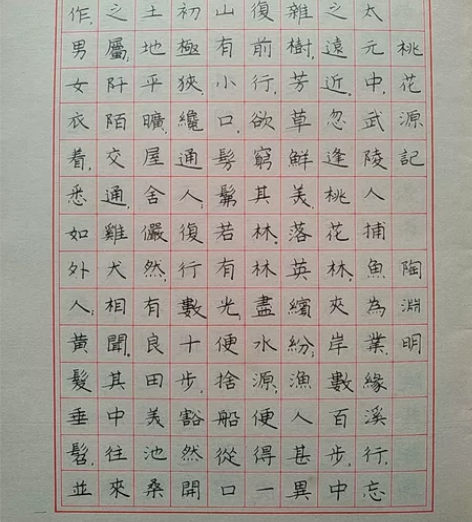 桃花源記 陶淵明
太元中,武陵人捕魚為業,緣溪行,忘
之遠近,忽逢桃花林,夾岸數百步,中
雜樹,芳草鮮美,落英繽紛;漁人甚異
復前行,欲窮其林.林盡水源,便得一
山有小口,髣髴若有光,便捨船從口
初極狹,纔通人;復行數十步,豁然開
土地平曠,屋舍儼然,有良田美池桑
之屬,阡陌交通,雞犬相聞.其中往來
作,男女衣着,悉如外人;黃髮垂髫,並